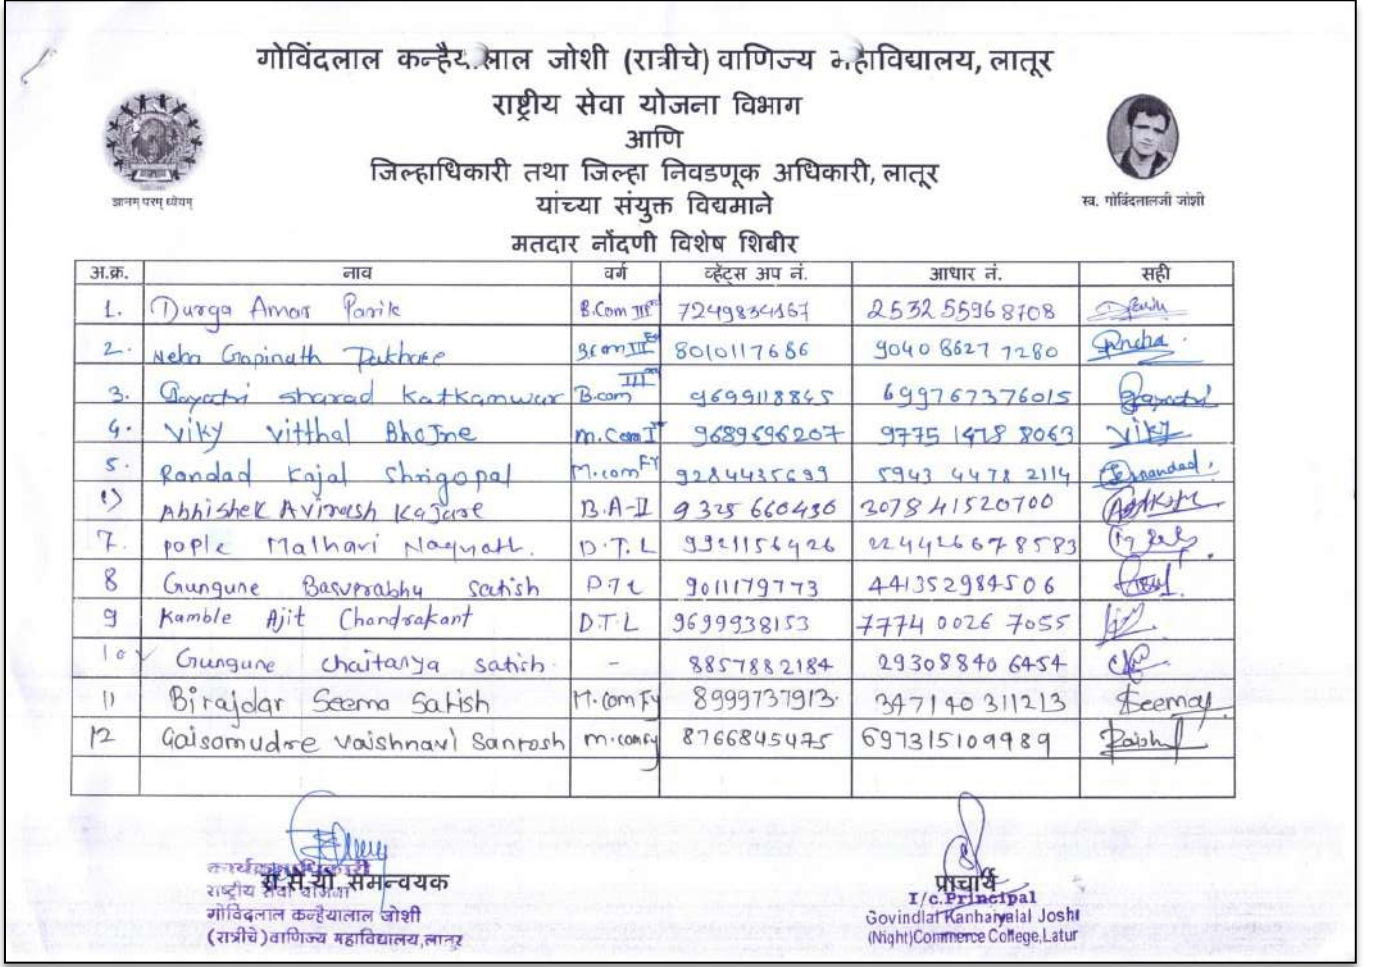 गोविंदलाल कन्हैयालाल जोशी (रात्रीचे) वाणिज्य महाविद्यालय, लातूर
राष्ट्रीय सेवा योजना विभाग
आणि
जिल्हाधिकारी तथा जिल्हा निवडणूक अधिकारी, लातूर
यांच्या संयुक्त विद्यमाने
मतदार नोंदणी विशेष शिबीर
ज्ञानम् परम् ध्येयम्
स्व. गोविंदलालजी जोशी
अ.क्र. नाव वर्ग व्हॅट्स अप नं. आधार नं. सही
1. Durga Amar Parik B.Com III 7249834167 2532 5596 8708
2. Neha Gopinath Pakhare B.com III 8010117686 9040 8627 7280 Pneha
3. Gayatri sharad Katkamwar B.com III 9699118845 699767376015 Gayatri
4. Viky Vitthal Bhojne M.Com I 9689696207 9775 1478 8063 Viky
5. Randad Kajal Shrigopal M.com FY 9284435699 5943 4478 2114
Abhishek Avinash Kajare B.A-II 9325660436 3078 41520700
7. pople Malhari Nagnath. D.T.L 9921156426 224426678583
8 Gungune Basvprabhu Satish DTL 9011179773 441352984506
9 Kamble Ajit Chandrakant D.T.L 9699938153 7774 0026 7055
10 Gungune chaitanya satish - 8857882184 29308840 6454
11 Birajdar Seema Satish M.com FY 8999737913 347140311213 Seema
12 Gaisamudre Vaishnavi Santosh M.com FY 8766845475 697315109989
रा.से.यो समन्वयक
राष्ट्रीय सेवा योजना
गोविंदलाल कन्हैयालाल जोशी
(रात्रीचे) वाणिज्य महाविद्यालय, लातूर
प्राचार्य
I/c.Principal
Govindlal Kanhaiyalal Joshi
(Night)Commerce College,Latur